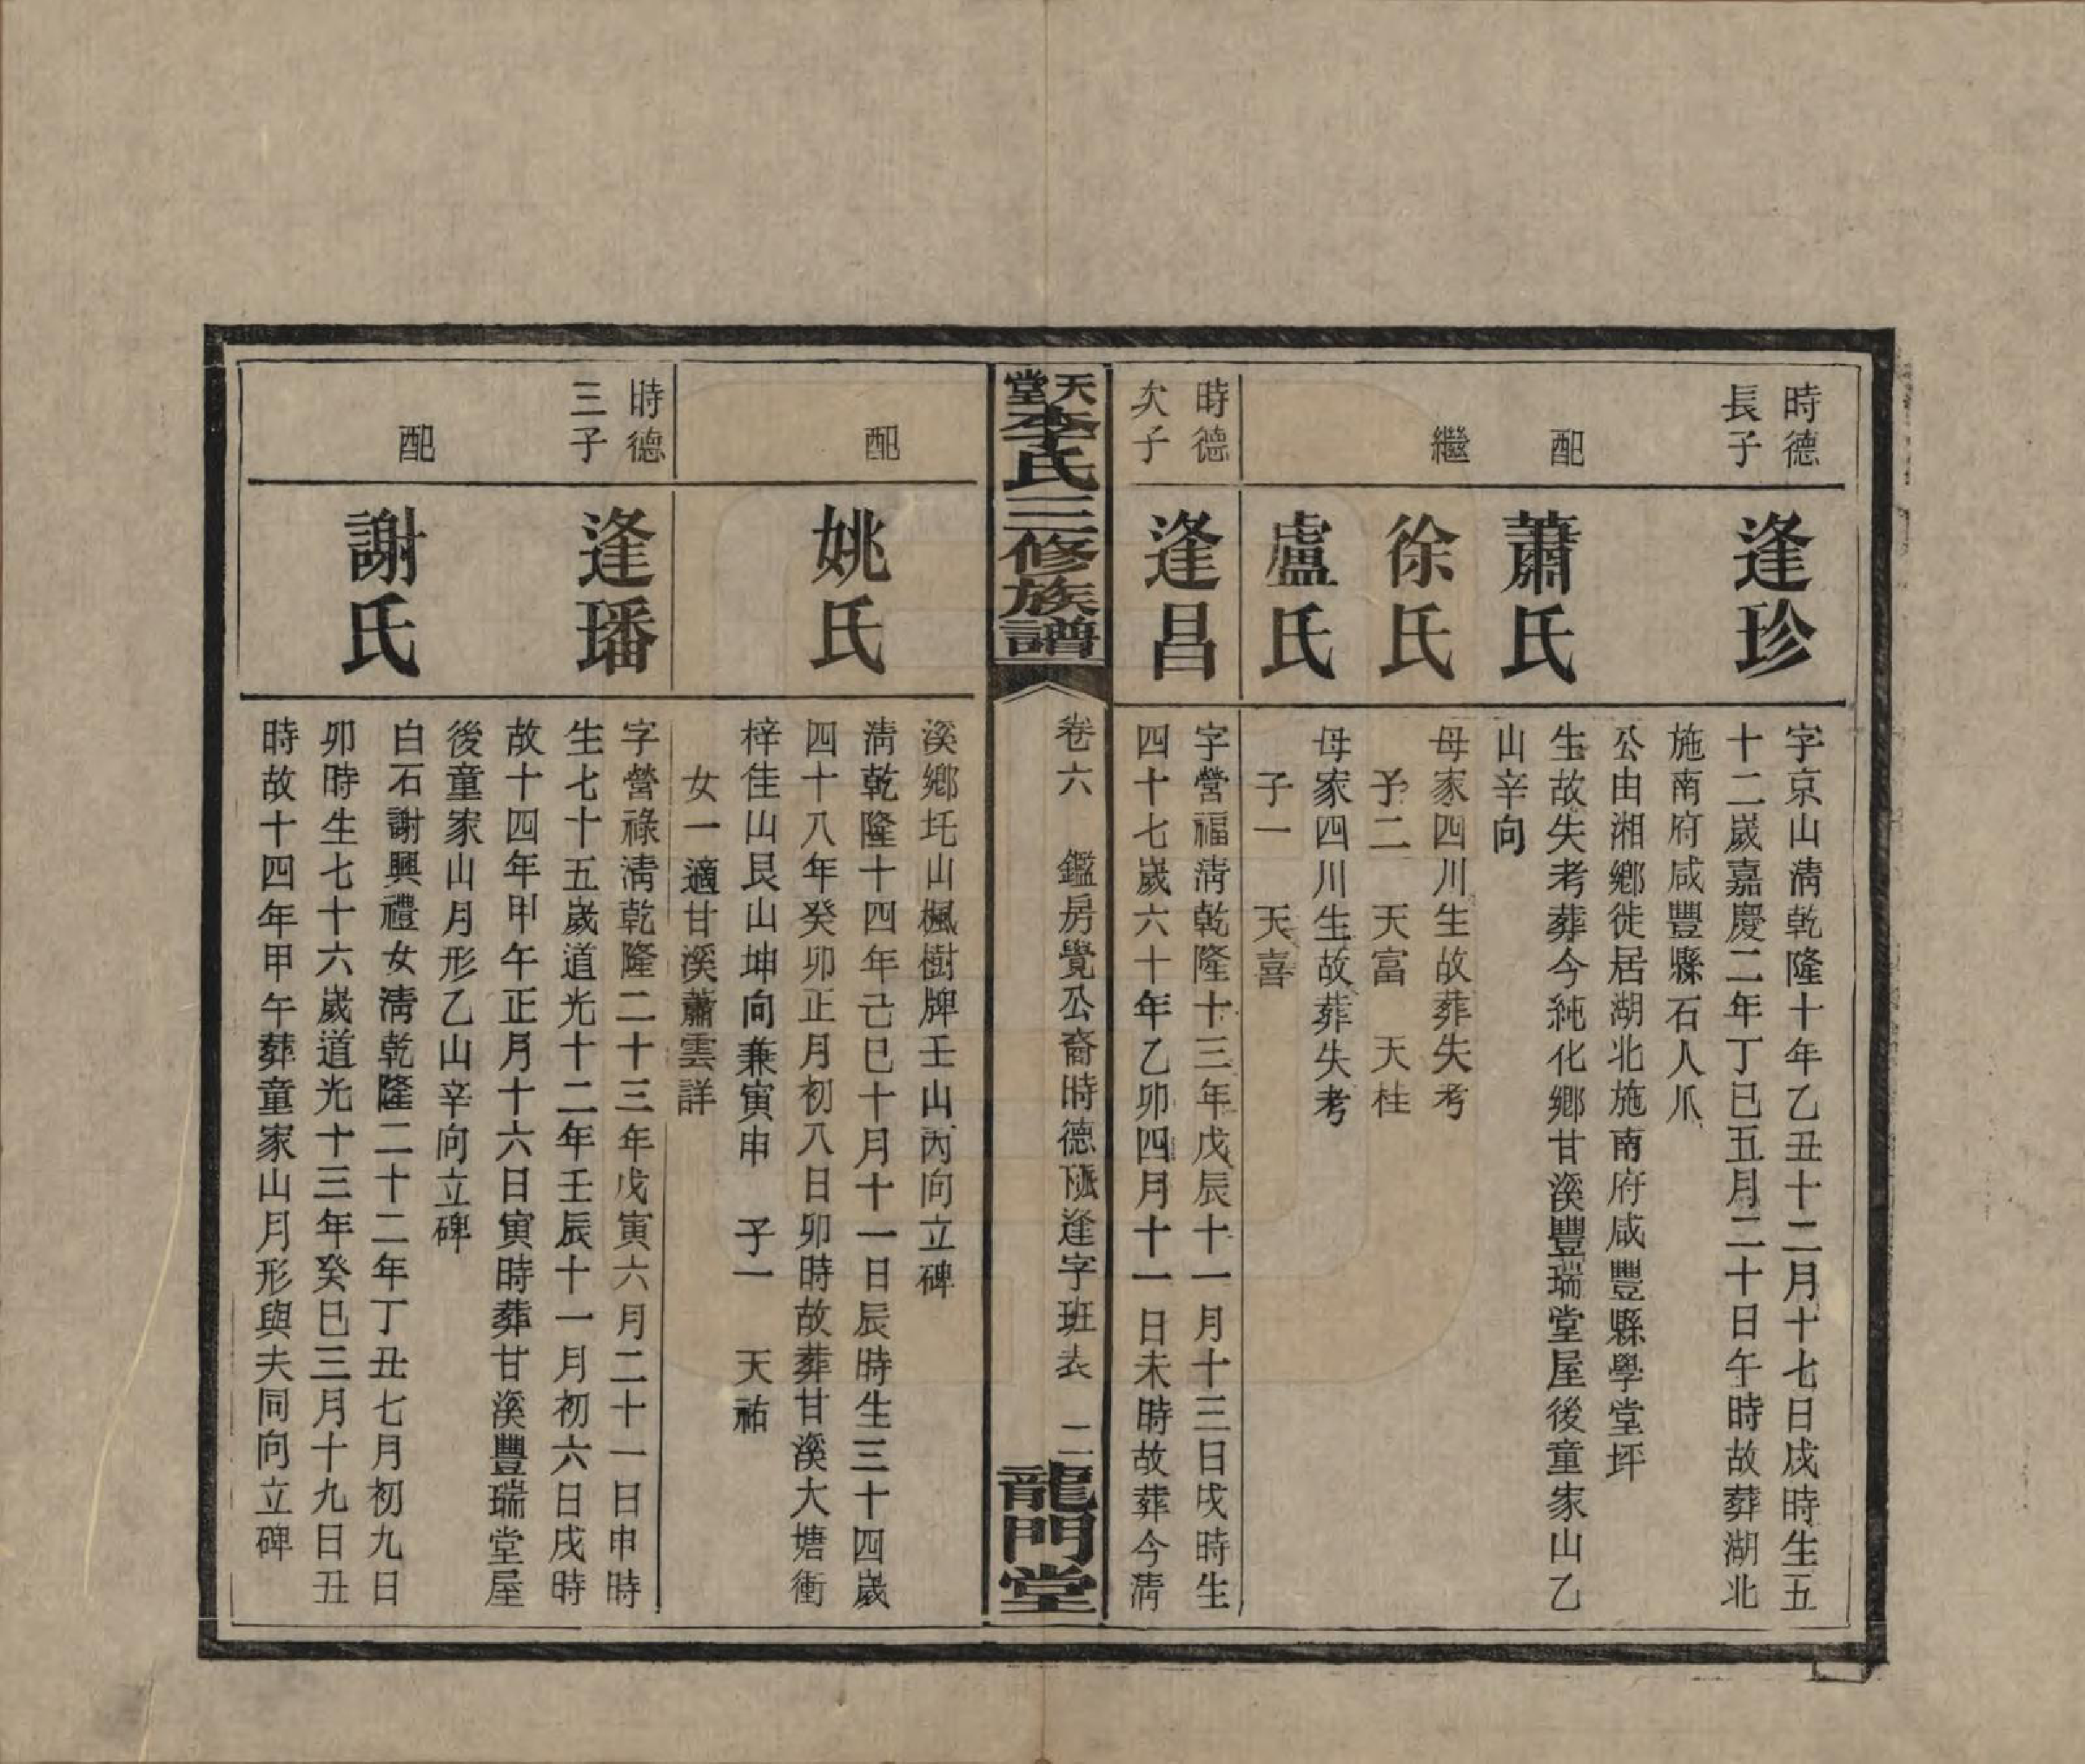 時德
長子
逢珍
字京山淸乾隆十年乙丑十二月十七日戌時生五
十二嵗嘉慶二年丁巳五月二十日午時故葬湖北
施南府咸豐縣石人爪
公由湘鄉徙居湖北施南府咸豐縣學堂坪
配
蕭氏
生故失考葬今純化鄉甘溪豐瑞堂屋後童家山乙
山辛向
繼
徐氏
母家四川生故葬失考
子二　天富　天桂
盧氏
母家四川生故葬失考
子一　天喜
時德
次子
逢昌
字營福淸乾隆十三年戊辰十一月十三日戌時生
四十七嵗六十年乙卯四月十一日未時故葬今淸
天堂李氏三修族譜
卷六　鑑房覺公裔時德派逢字班表　二
龍門堂
溪鄉圫山楓樹牌壬山丙向立碑
配
姚氏
淸乾隆十四年己巳十月十一日辰時生三十四嵗
四十八年癸卯正月初八日卯時故葬甘溪大塘衝
梓佳山艮山坤向兼寅申　子一　天祐
女一適甘溪蕭雲詳
時德
三子
逢璠
字營祿淸乾隆二十三年戊寅六月二十一日申時
生七十五嵗道光十二年壬辰十一月初六日戌時
故十四年甲午正月十六日寅時葬甘溪豐瑞堂屋
後童家山月形乙山辛向立碑
配
謝氏
白石謝興禮女淸乾隆二十二年丁丑七月初九日
卯時生七十六嵗道光十三年癸巳三月十九日丑
時故十四年甲午葬童家山月形與夫同向立碑